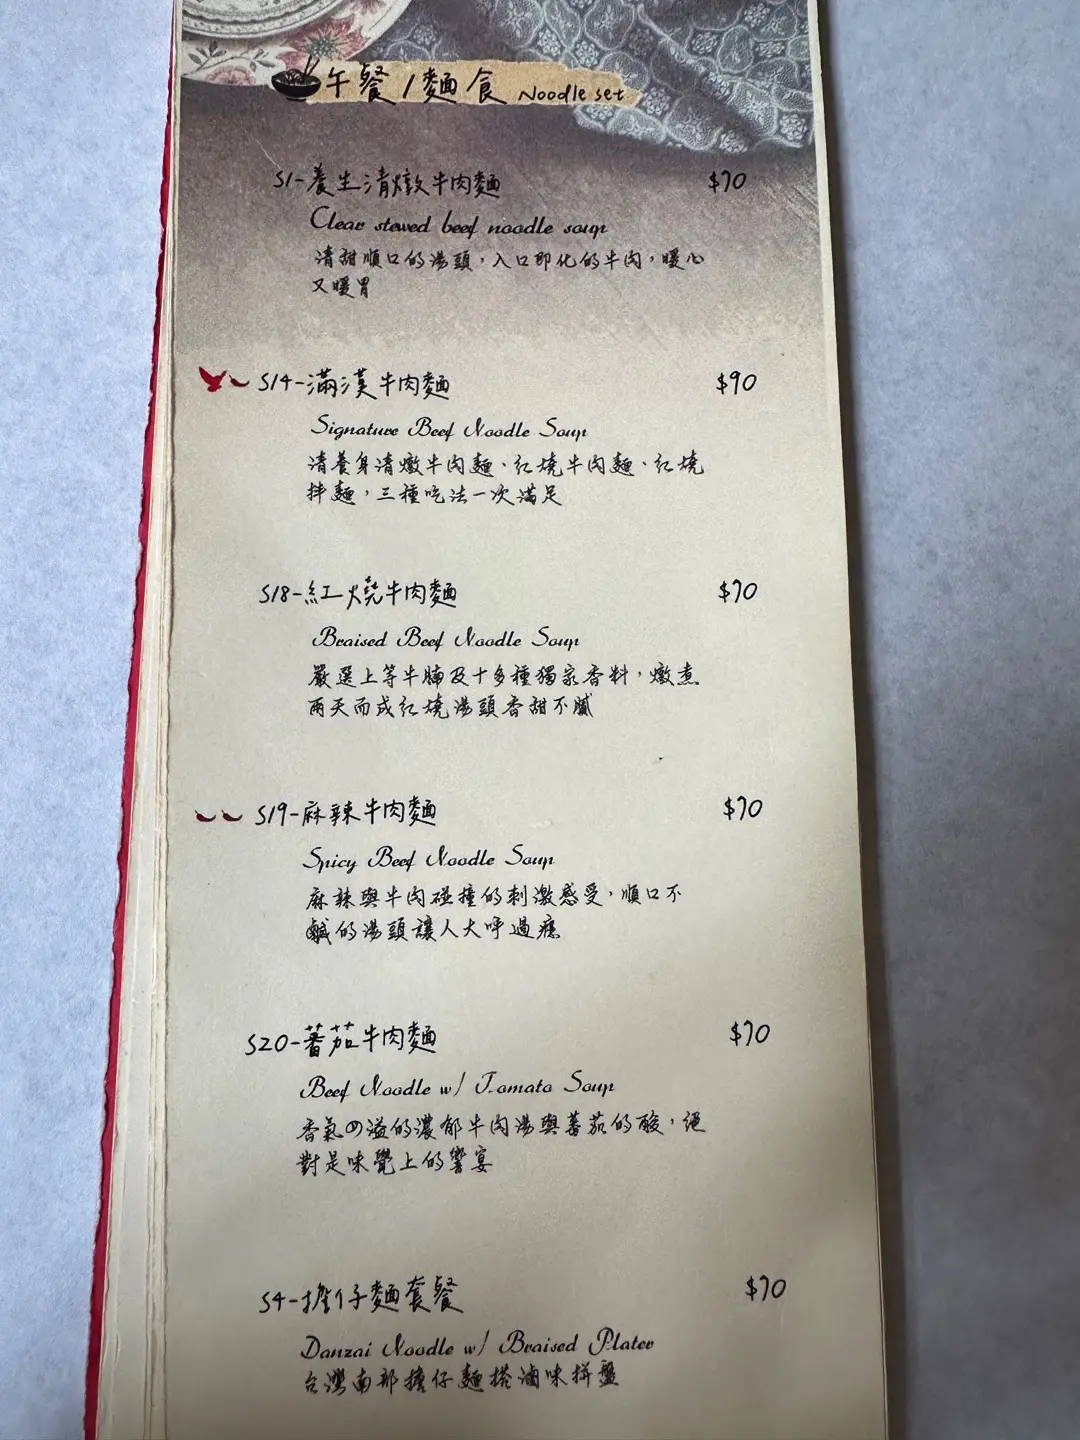 午餐/麵食 Noodle set
S1-養生清燉牛肉麵 $70
Clear stewed beef noodle soup
清甜順口的湯頭，入口即化的牛肉，暖心
又暖胃
S14-滿漢牛肉麵 $90
Signature Beef Noodle Soup
清養身清燉牛肉麵、紅燒牛肉麵、紅燒
拌麵，三種吃法一次滿足
S18-紅燒牛肉麵 $70
Braised Beef Noodle Soup
嚴選上等牛腩及十多種獨家香料，燉煮
兩天而成紅燒湯頭香甜不膩
S19-麻辣牛肉麵 $70
Spicy Beef Noodle Soup
麻辣與牛肉碰撞的刺激感受，順口不
鹹的湯頭讓人大呼過癮
S20-蕃茄牛肉麵 $70
Beef Noodle w/ Tomato Soup
香氣四溢的濃郁牛肉湯與蕃茄的酸，絕
對是味覺上的饗宴
S4-擔仔麵套餐 $70
Danzai Noodle w/ Braised Plater
台灣南部擔仔麵搭滷味拼盤